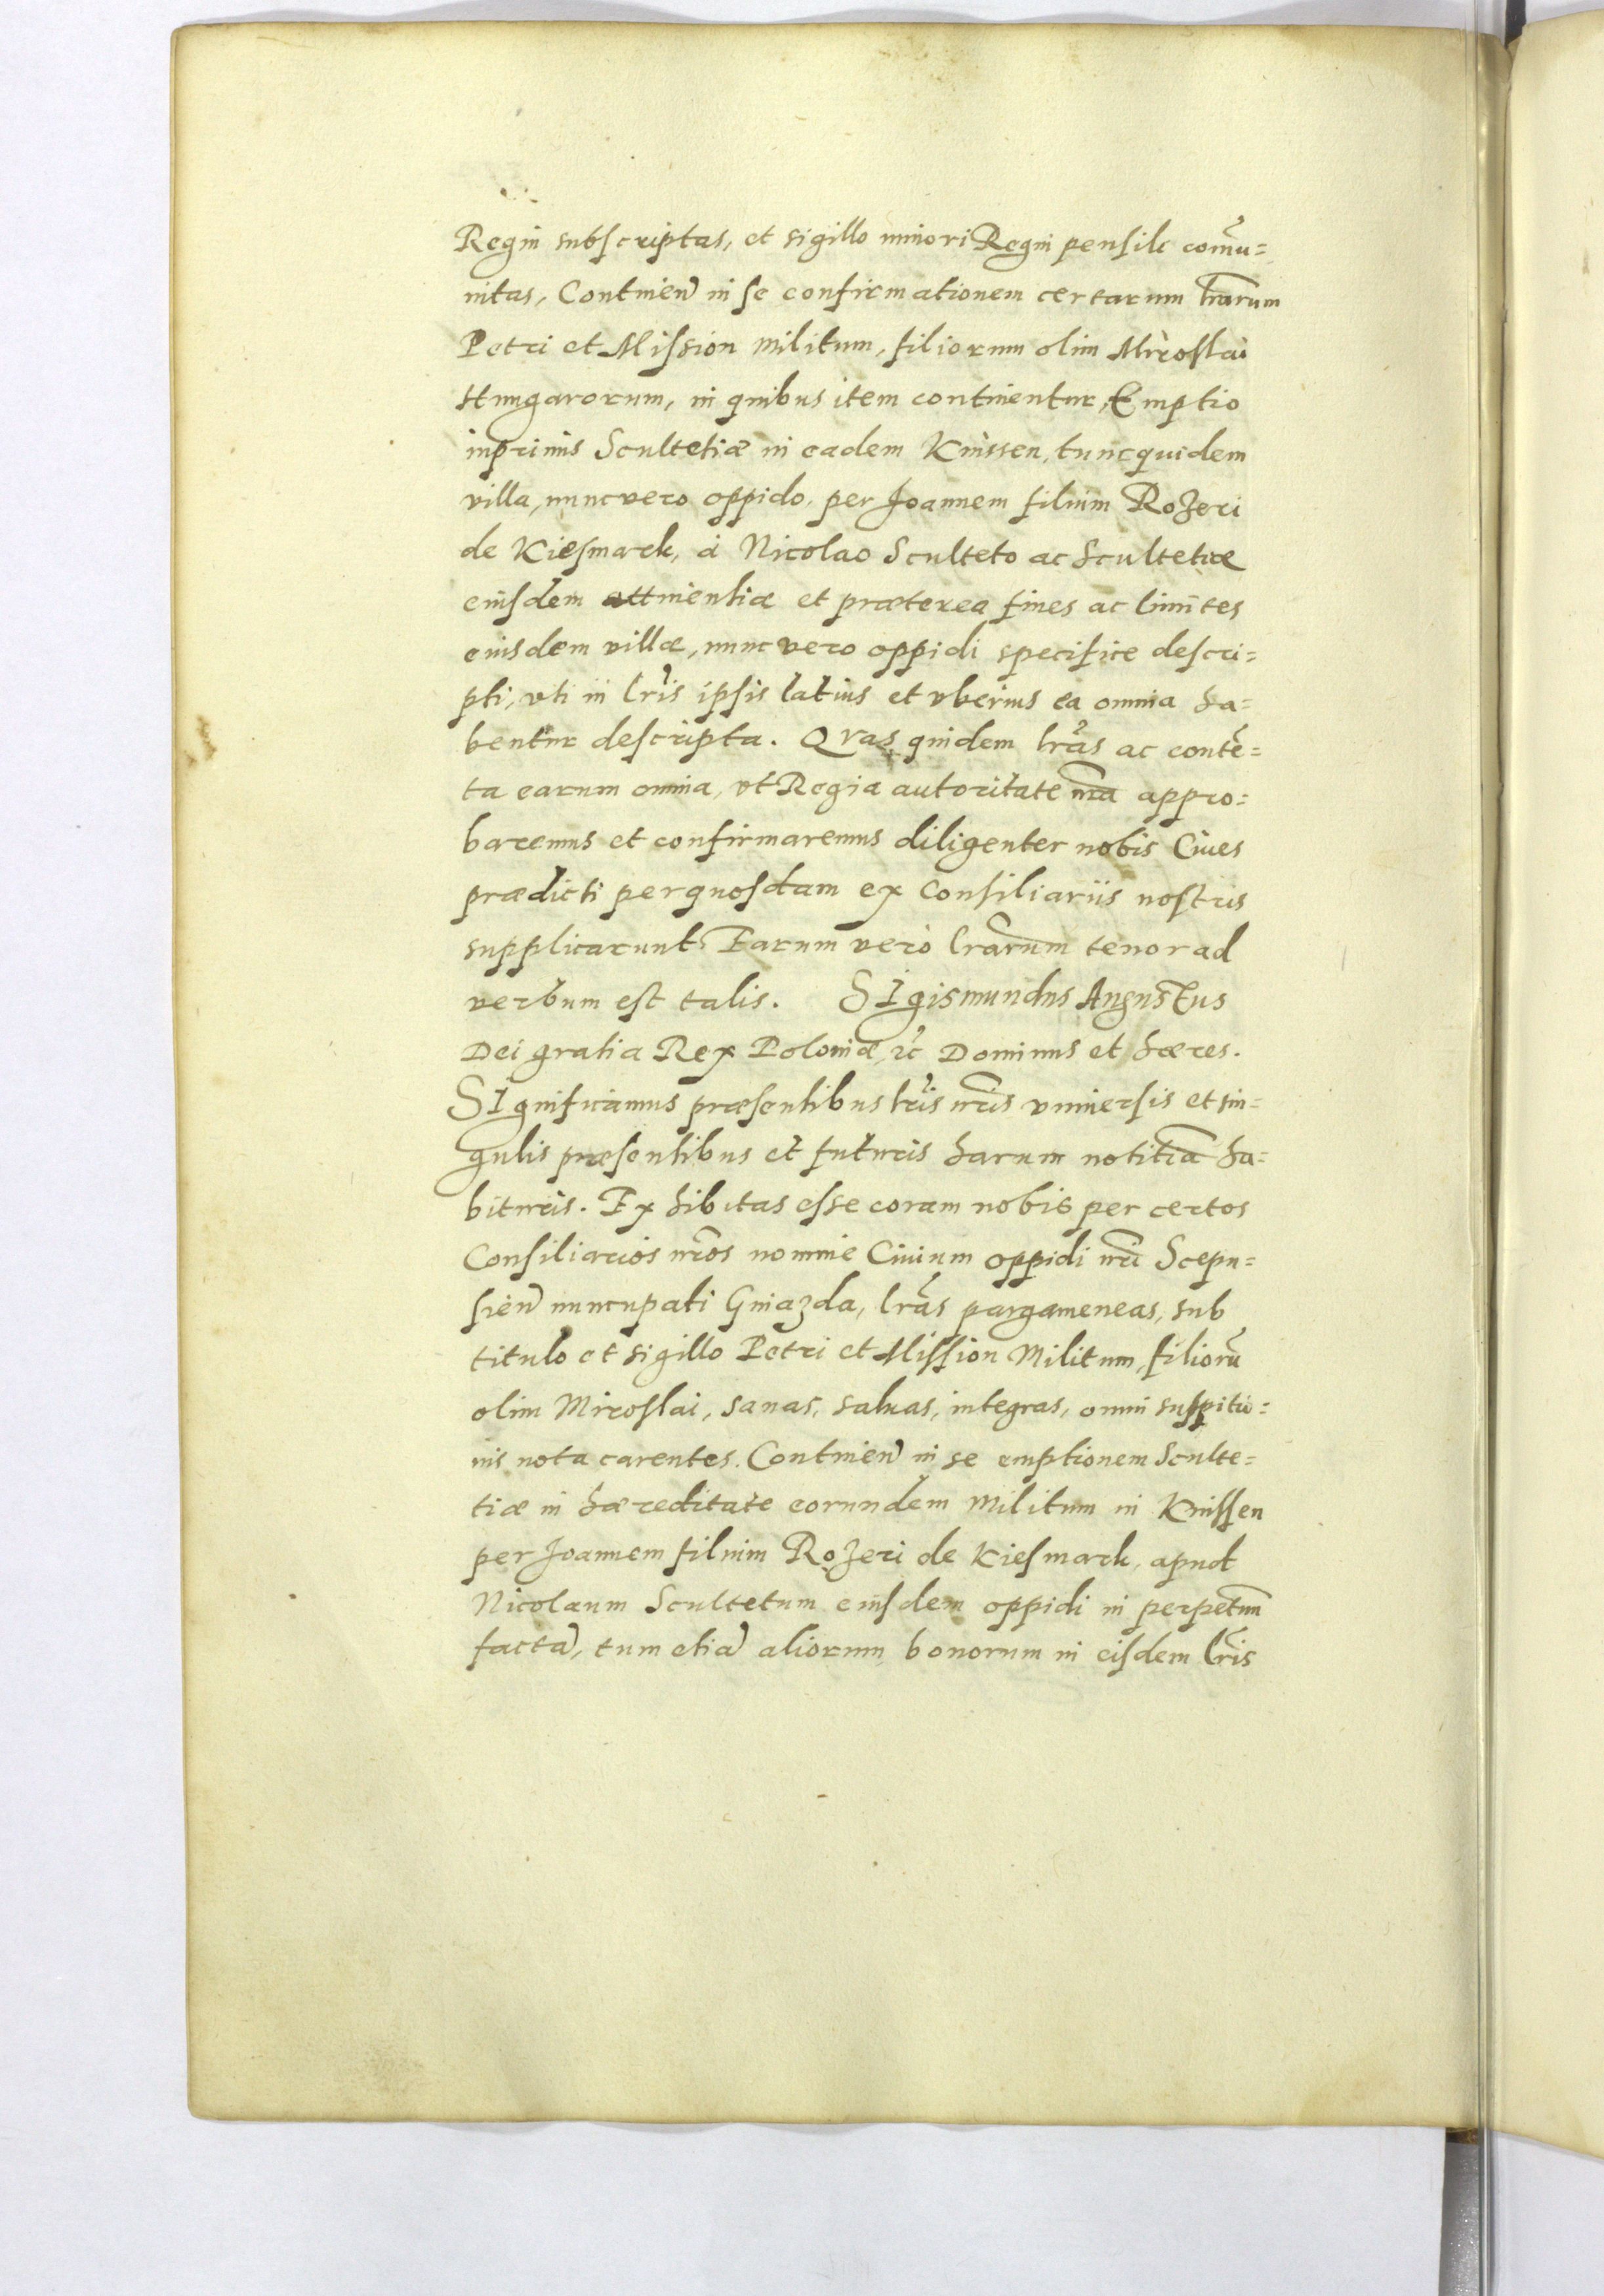 Regni subscriptas, et sigillo minori Regni pensili com̃u=
nitas, Continen̄ in se confirmationem certarum l̄rarum
Petri et Mission militum, filiorum olim Miroslai
Hungarorum, in quibus item continentur, Emptio
inprimis Scultetiæ in eadem Knissen, tunc quidem
villa, nunc vero oppido, per Joannem filium Rozeri
de Kiesmarck, à Nicolao Sculteto ac Scultetiæ
eiusdem attinentiæ et præterea fines ac limites
eiusdem villæ, nunc vero oppidi specifice descri=
pti, vti in l̄ris ipsis latius et vberius ea omnia ha=
bentur descripta. Qvas quidem l̄ras ac contē=
ta earum omnia, vt Regia autoritate n̄ra appro=
baremus et confirmaremus diligenter nobis Ciues
prædicti per quosdam ex Consiliariis nostris
supplicarunt. Earum verò l̄rarum tenor ad
verbum est talis. SIgismundus Augustus
Dei gratia Rex Poloniæ, ꝛc̄ Dominus et hæres.
SIgnificamus præsentibus l̄ris n̄ris vniuersis et sin=
gulis præsentibus et futuris harum notitiā ha=
bituris. Exhibitas esse coram nobis per certos
Consiliarios n̄ros nomine Ciuium oppidi n̄ri Scepu=
sien̄ nuncupati Gniazda, l̄ras pargameneas, sub
titulo et sigillo Petri et Mission Militum, filiorū
olim Miroslai, sanas, saluas, integras, omni suspitio=
nis nota carentes. Continen̄ in se emptionem Sculte=
tiæ in hæreditate eorundem Militum in Knissen
per Joannem filium Rozeri de Kiesmarck, apud
Nicolaum Scultetum eiusdem oppidi in perpetuū
factā, tum etiā aliorum bonorum in eisdem l̄ris